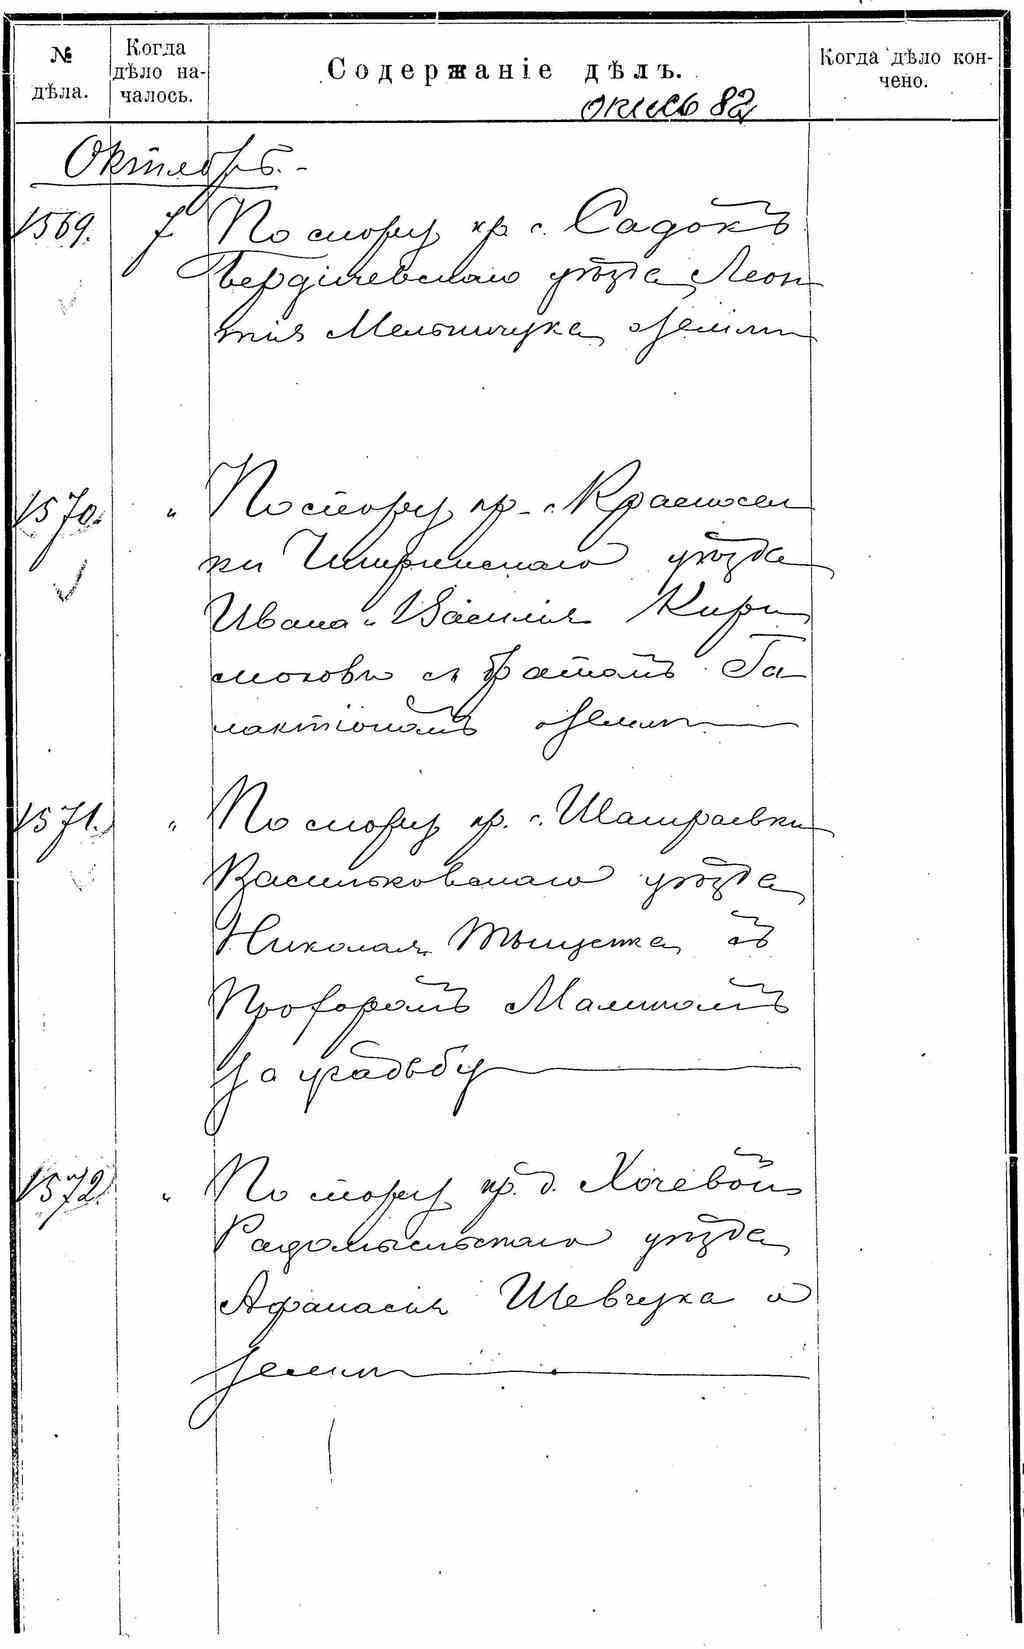 № дѣла.
Когда дѣло началось.
Содержаніе дѣлъ.
Когда дѣло кончено.
опись 82
Октябрь.
1569. 7 По спору кр. с. Садокъ
Бердичевскаго уѣзда Леон
тія Мельничука о землѣ
1570. " По спору кр. с. Красносел
ки Чигиринскаго уѣзда
Ивана и Василія Кири
люковы съ братомъ Га
лактіономъ о землѣ
1571. " По спору кр. с. Шамраевки
Васильковскаго уѣзда
Николая Тыщенка съ
Прохоромъ Малимомъ
за усадьбу
1572. " По спору кр. д. Хочевой
Радомысльскаго уѣзда
Афанасія Шевчука о
землѣ